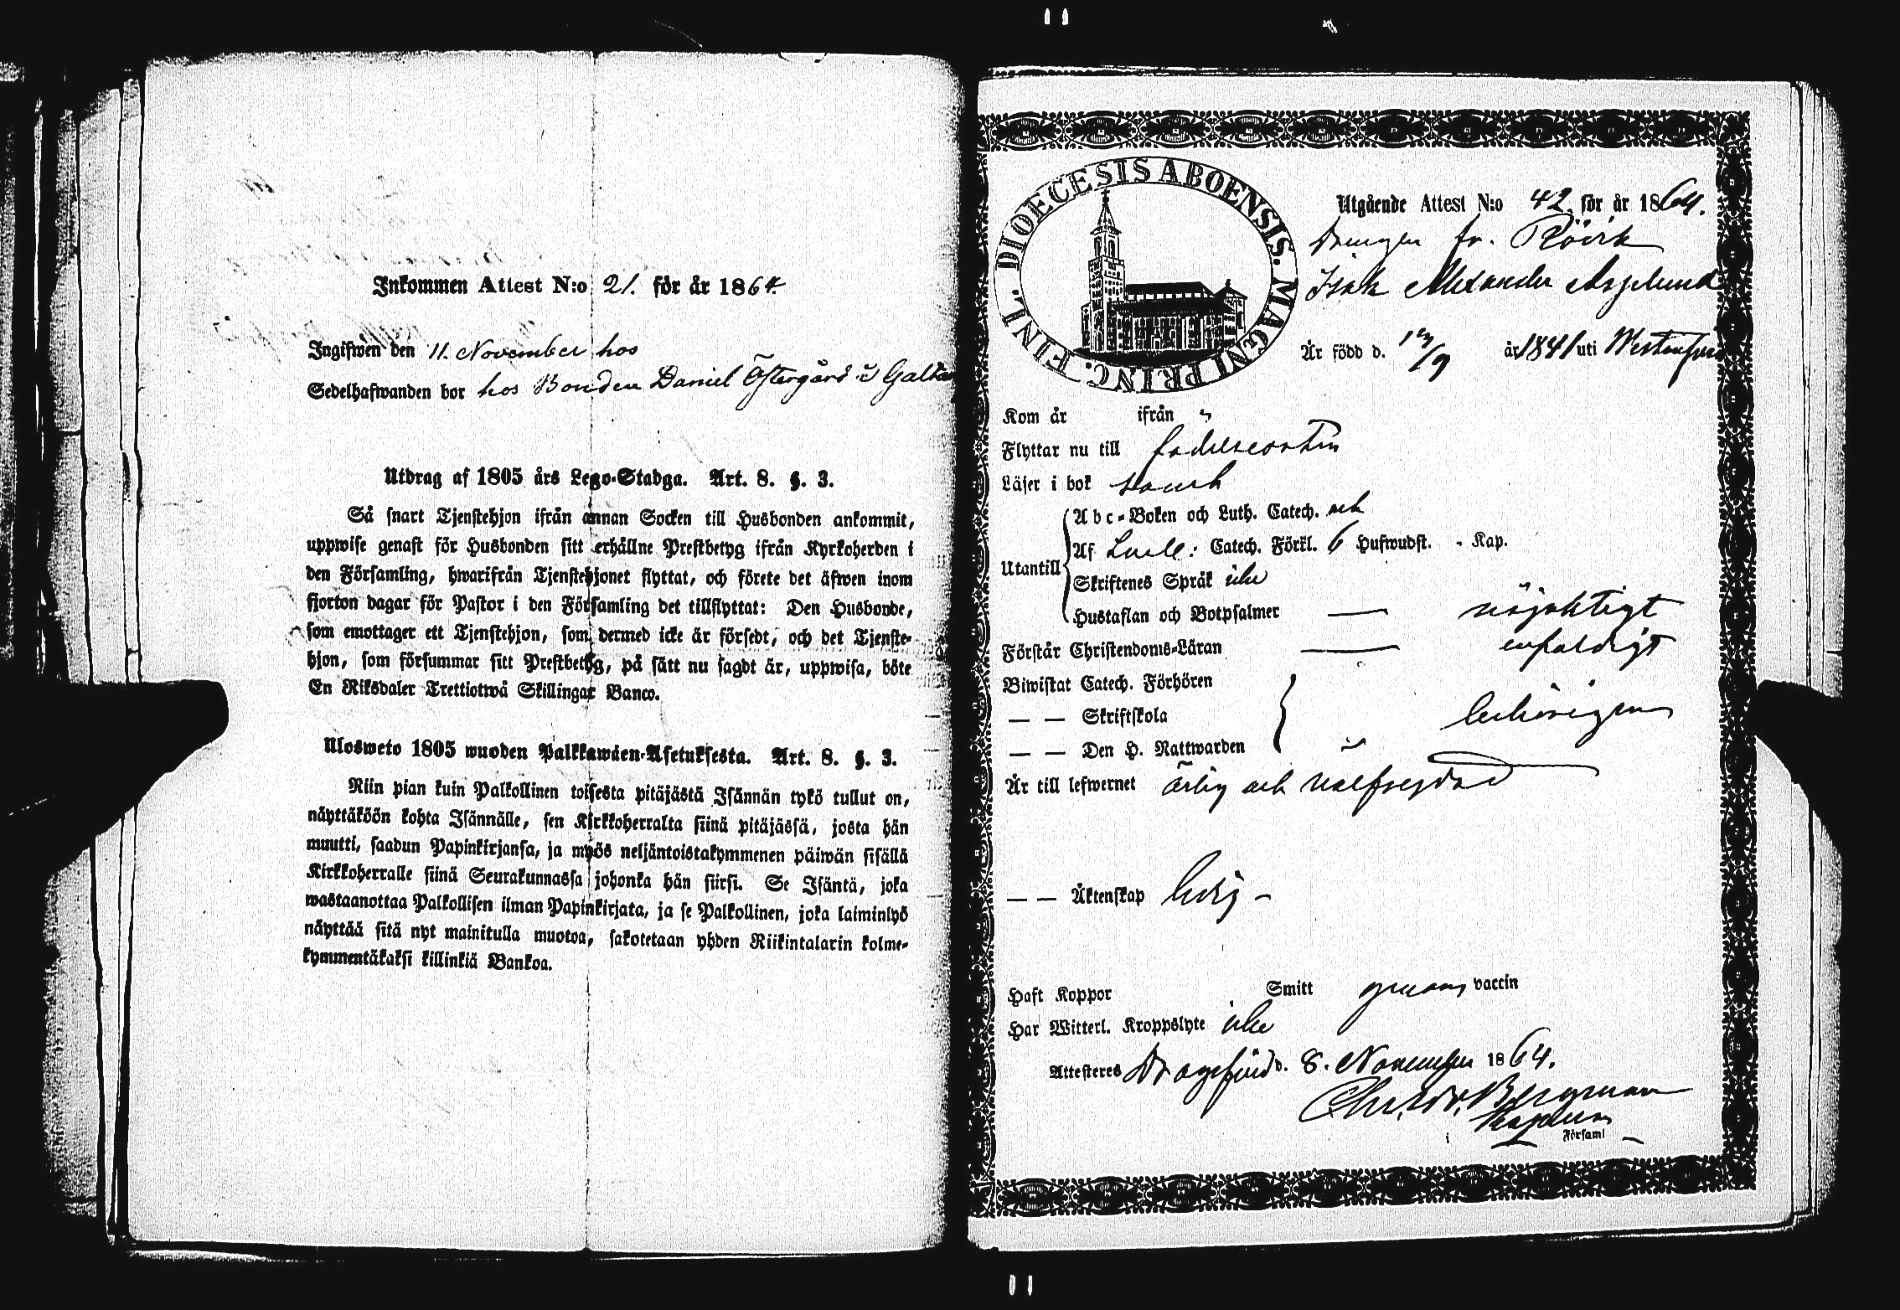 Inkommen Attest N:o 21. för år 1864.
Ingifwen den 11. November hos
Sedelhafwanden bor hos Bonden Daniel Östergård i
Utdrag af 1805 års Lego-Stadga. Art. 8. §. 3.
Så snart Tjenstehjon ifrån annan Socken till Husbonden ankommit,
uppwise genast för Husbonden sitt erhållne Prestbetyg ifrån Kyrkoherden i
den Församling, hwarifrån Tjenstehjonet flyttat, och förete det äfwen inom
fjorton dagar för Pastor i den Församling det tillflyttat: Den Husbonde,
som emottager ett Tjenstehjon, som dermed icke är försedt, och det Tjenste-
hjon, som försummar sitt Prestbetyg, på sätt nu sagdt är, uppwisa, böte
En Riksdaler Trettiotwå Skillingar Banco.
Ulosweto 1805 wuoden Palkkawäen-Asetuksesta. Art. 8. §. 3.
Niin pian kuin Palkollinen toisesta pitäjästä Isännän tykö tullut on,
näyttäköön kohta Isännälle, sen Kirkkoherralta siinä pitäjässä, josta hän
muutti, saadun Papinkirjansa, ja myös neljäntoistakymmenen päiwän sisällä
Kirkkoherralle siinä Seurakunnassa johonka hän siirsi. Se Isäntä, joka
wastaanottaa Palkollisen ilman Papinkirjata, ja se Palkollinen, joka laiminlyö
näyttää sitä nyt mainitulla muotoa, sakotetaan yhden Riikintalarin kolme-
kymmentäkaksi killinkiä Bankoa.
DIOECESIS ABOENSIS. MAGNI PRINC. FINL.
Utgående Attest N:o 42. för år 1864.
Drengen fr. Rövik
Isak Alexander Asplund
Är född d. /9 år 1841 uti
Kom år ifrån "
Flyttar nu till faderseorten
Läser i bok svensk
Abc-Boken och Luth. Catech. och
Utantill Af Catech. Förkl. 6 Hufwudst. - Kap.
Skriftenes Språk icke
Hustaflan och Botpsalmer — nöjaktigt
Förstår Christendoms-Läran — enfaldigt
Biwistat Catech. Förhören
— — Skriftskola behörigen
— — Den H. Nattwarden
Är till lefwernet ärlig och välfrejdad
— — Äktenskap ledig -
Haft Koppor Smitt genom vaccin
Har Witterl. Kroppslyte icke
Attesteres Dragsfjerd d. 8. November 1864.
Bergman
Kaplan
i Församl